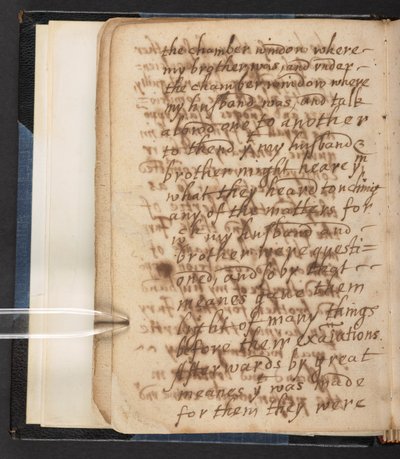 the chamber window where
my brother was, and under
the chamber window where
my husband was, and talk
along one to another
to thend yt my husband &
brother might heare ym
what they heard touching
any of the matters for
wch my husband and
brother were questi=
oned, and so by that
meanes gave them
light of many things
before their exaĩations.
Afterwards by great
meanes yt was made
for them they were